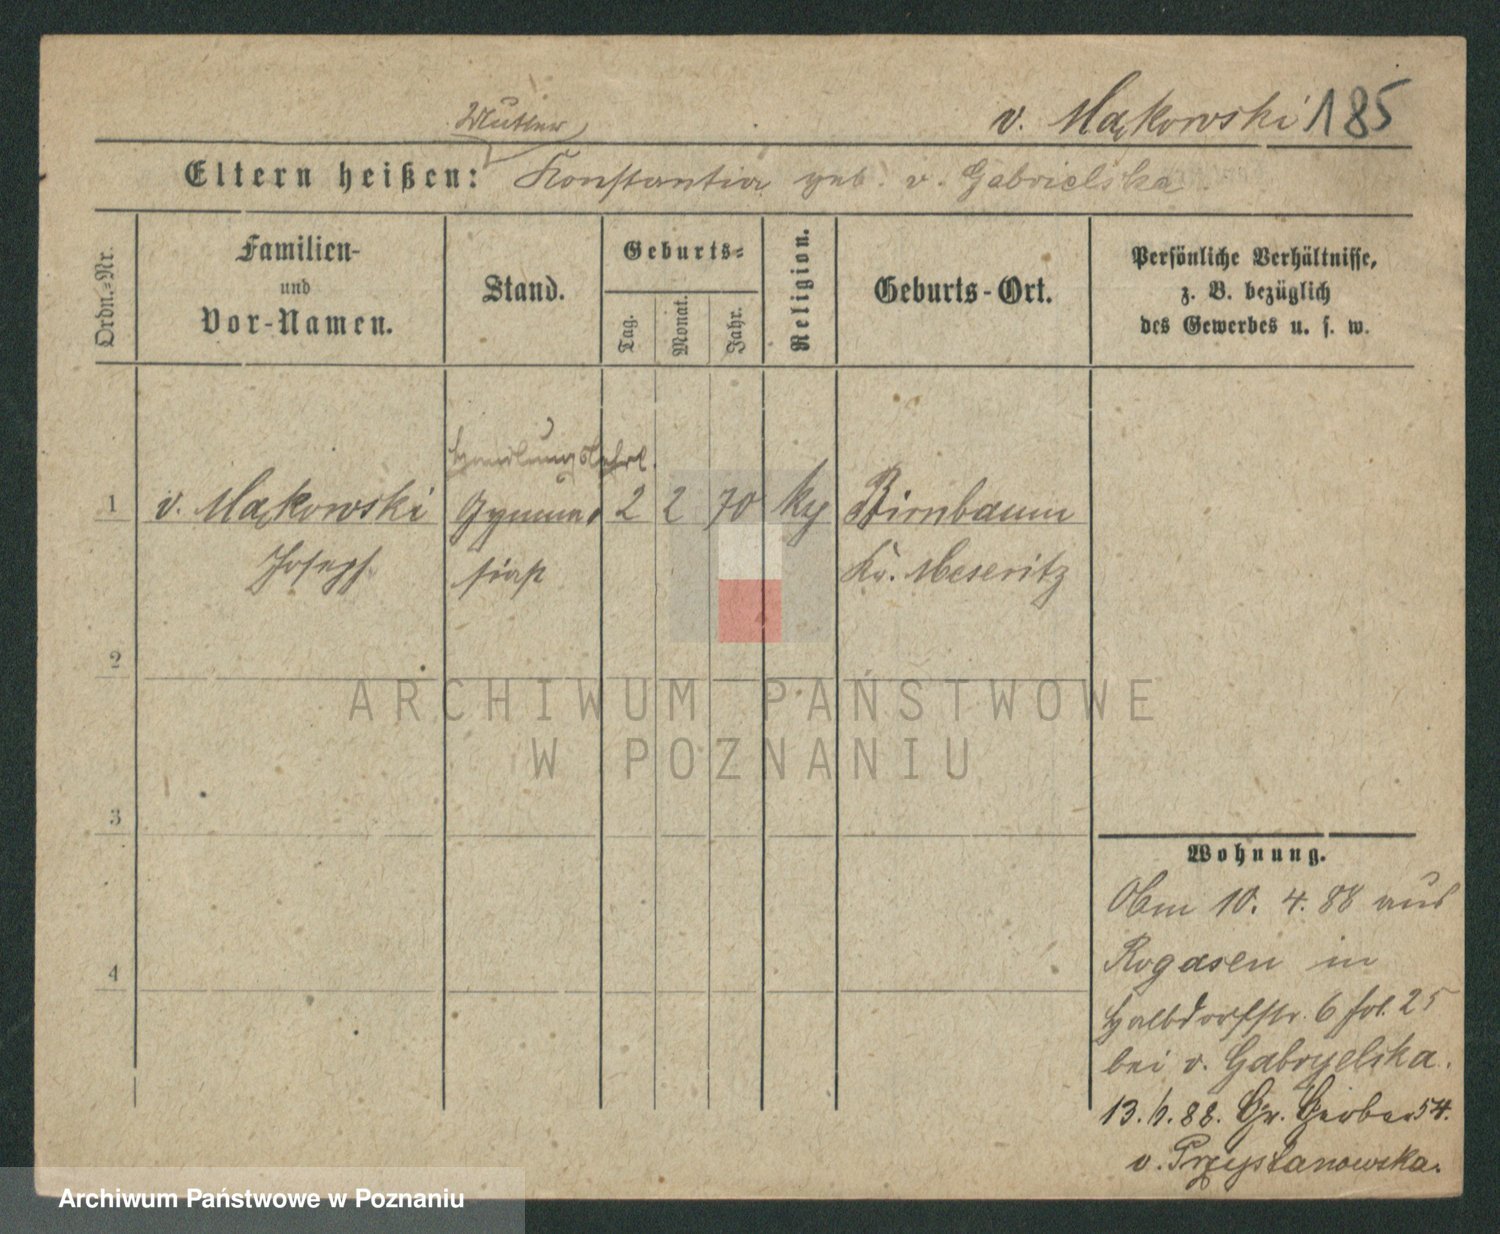 v. Mąkowski 185
Mutter
Eltern heißen: Konstantia geb. v. Gabrielska
Ordn.-Nr.
Familien-
und
Vor-Namen.
Stand.
Geburts-
Tag.
Monat.
Jahr.
Religion.
Geburts-Ort.
Persönliche Verhältnisse,
z. B. bezüglich
des Gewerbes u. s. w.
Handlungslehrl.
1 v. Mąkowski Gymna 2 2 70 Birnbaum
Joseph siast Kr. Meseritz
2
ARCHIWUM PAŃSTWOWE
W POZNANIU
3
Wohnung.
10. 4. 88 aus
Rogasen in
4
Halbdorfstr. 6 fol. 25
bei v. Gabryelska.
13. 88. Gr. Gerber 54.
v. Przystanowska.
Archiwum Państwowe w Poznaniu